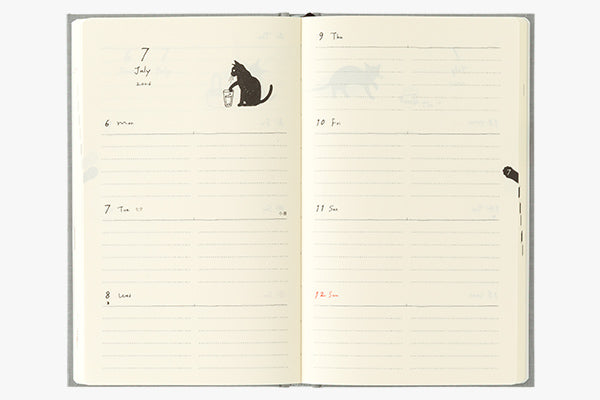 7
July
2026
6 Mon
7 Tue
8 Wed
9 Thu
10 Fri
11 Sat
12 Sun
7